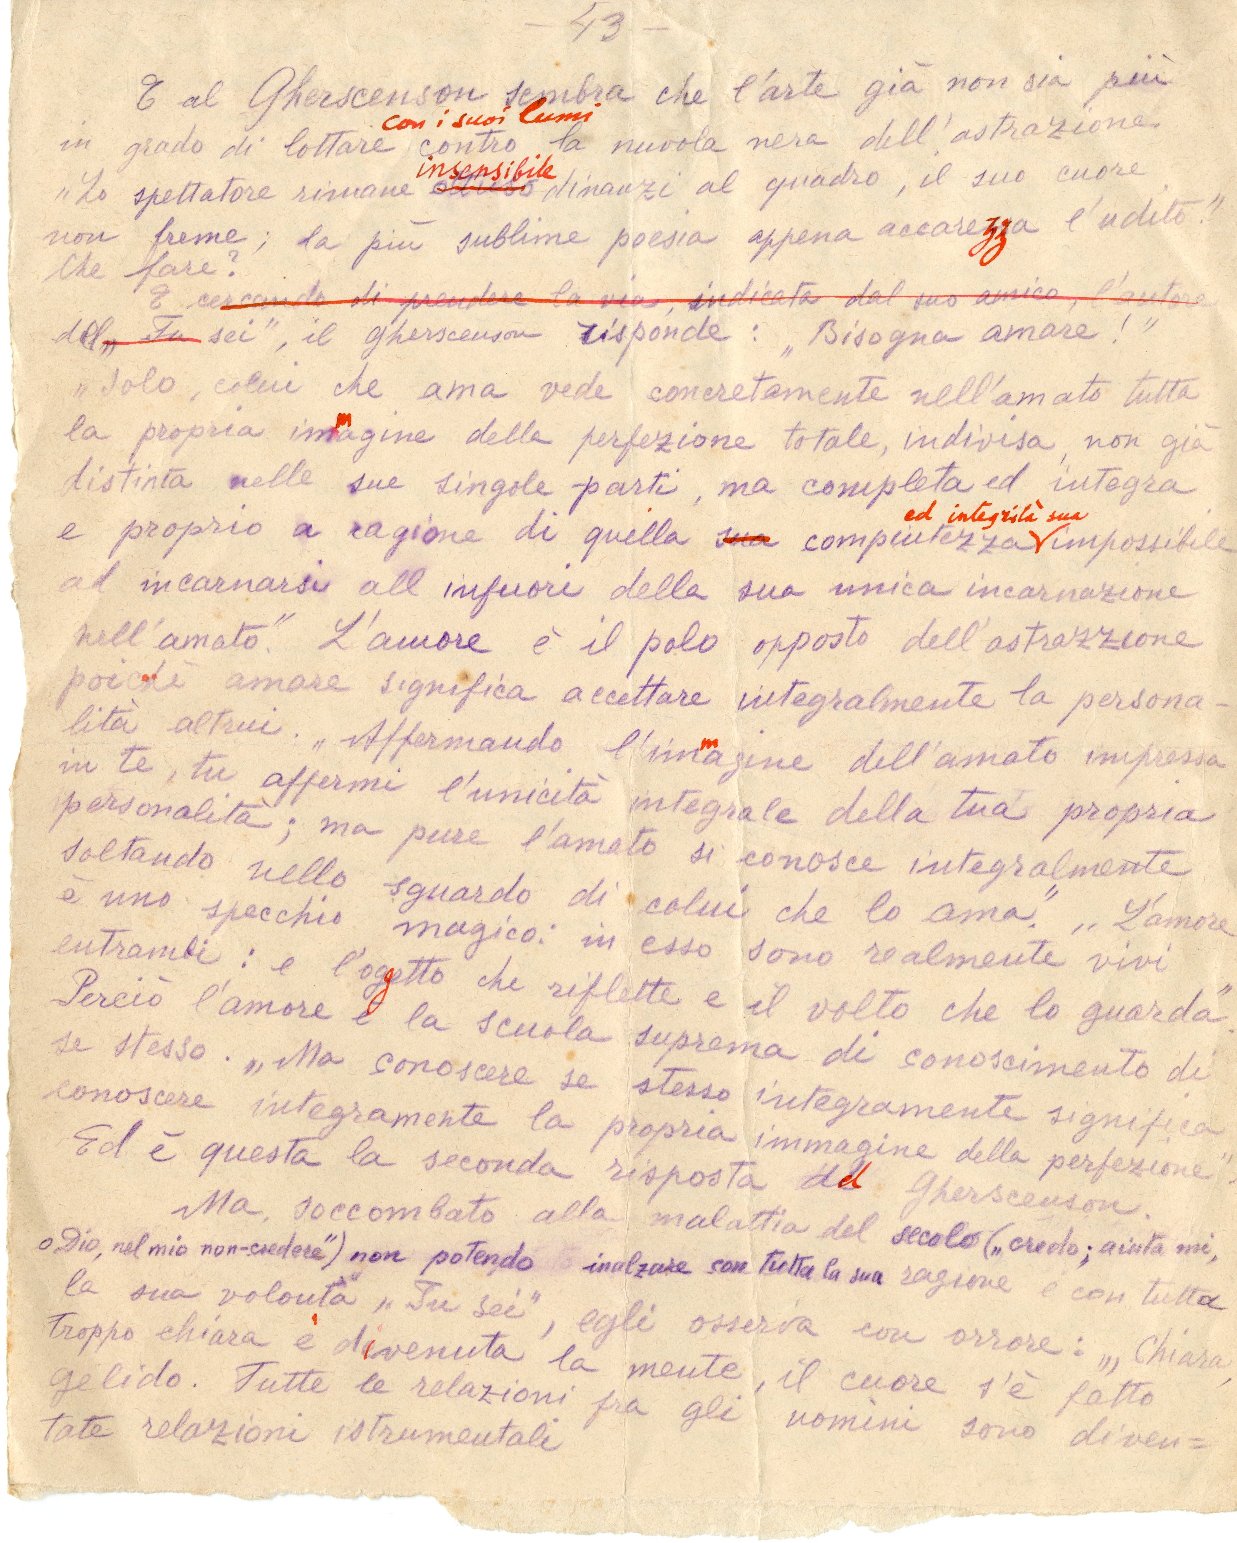 – 43 –
E al Gherscenson sembra che l'arte già non sia più
con i suoi lumi
in grado di lottare contro la nuvola nera dell'astrazione.
insensibile
"Lo spettatore rimane ottuso dinanzi al quadro, il suo cuore
non freme; la più sublime poesia appena accarezza l'udito."
Che fare?
E cercando di prendere la via, indicata dal suo amico, l'autore
del „Tu sei", il Gherscenson risponde: „Bisogna amare!"
„Solo colui che ama vede concretamente nell'amato tutta
la propria immagine della perfezione totale, indivisa, non già
distinta nelle sue singole parti, ma completa ed integra
ed integrità sua
e proprio a ragione di quella sua compiutezza impossibile
ad incarnarsi all infuori della sua unica incarnazione
nell'amato". L'amore è il polo opposto dell'astrazzione
poichè amare significa accettare integralmente la persona-
lità altrui. „Affermando l'immagine dell'amato impressa
in te, tu affermi l'unicità integrale della tua propria
personalità; ma pure l'amato si conosce integralmente
soltando nello sguardo di colui che lo ama". „L'amore
è uno specchio magico: in esso sono realmente vivi
entrambi: e l'oggetto che riflette e il volto che lo guarda".
Perciò l'amore è la scuola suprema di conoscimento di
se stesso. „Ma conoscere se stesso integramente significa
conoscere integramente la propria immagine della perfezione".
Ed è questa la seconda risposta del Gherscenson.
Ma, soccombato alla malattia del secolo („credo; aiuta mi,
o Dio, nel mio non-credere") non potendo inalzare con tutta la sua ragione e con tutta
la sua volontà „Tu sei", egli osserva con orrore: „Chiara,
troppo chiara è divenuta la mente, il cuore s'è fatto
gelido. Tutte le relazioni fra gli uomini sono diven=
tate relazioni istrumentali